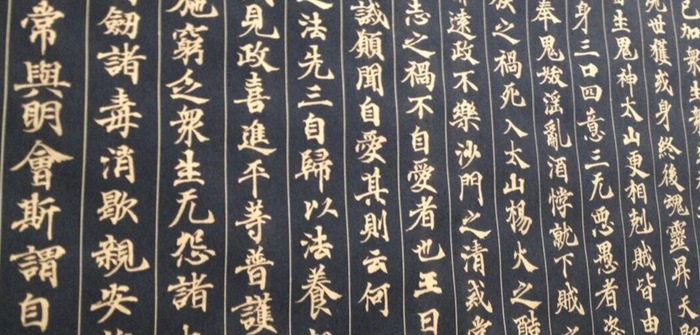 已加衆
世獲或身終後魂靈昇天
生鬼神太山更相剋賊皆由
身三口四意三无惡愚者
奉鬼妖淫亂酒悖就下賊
之禍死入太山楊火之酷
遠政不樂沙門之清戒常
志之禍不自愛者也王曰
誠願聞自愛其則云何
之法先三自歸以法養
見政喜進平等普護
施窮乏衆生无怨諸
劒諸毒消歇親安
常與明會斯謂自